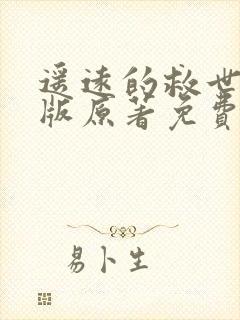 遥远的救世
版原著免费
易卜生